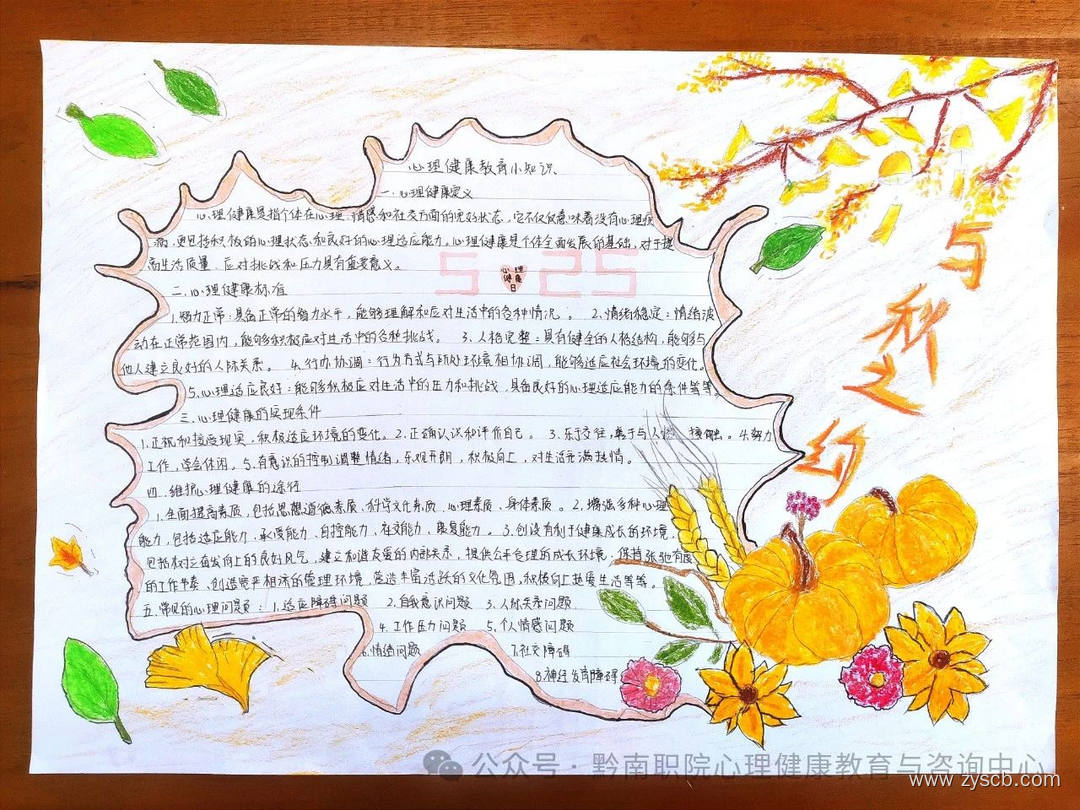 心理健康教育小知识
一.心理健康定义
心理健康是指个体在心理、情感和社交方面的良好状态,它不仅仅意味着没有心理疾
病,更包括积极的心理状态和良好的心理适应能力。心理健康是个体全面发展的基础,对于提
高生活质量、应对挑战和压力具有重要意义。
5 25
心理健康日
二.心理健康标准
1.智力正常:具备正常的智力水平,能够理解和应对生活中的各种情况。 2.情绪稳定:情绪波
动在正常范围内,能够积极应对生活中的各种挑战。 3.人格完整:具有健全的人格结构,能够与
他人建立良好的人际关系。 4.行为协调:行为方式与所处环境相协调,能够适应社会环境的变化。
5.心理适应良好:能够积极应对生活中的压力和挑战,具备良好的心理适应能力的条件等等。
三.心理健康的实现条件
1.正视和接受现实,积极适应环境的变化。2.正确认识和评价自己。 3.乐于交往,善于与人 接触。4.努力
工作,学会休闲。5.有意识的控制调整情绪,乐观开朗,积极向上,对生活充满热情。
四.维护心理健康的途径
1.全面提高素质,包括思想道德素质、科学文化素质、心理素质、身体素质。2.增强多种心理
能力,包括适应能力、承受能力、自控能力、社交能力、康复能力。3.创设有利于健康成长的环境,
包括树立奋发向上的良好风气,建立和谐友爱的内部关系,提供公平合理的成长环境,保持张弛有度
的工作节奏,创造宽严相济的管理环境,营造丰富活跃的文化氛围,积极向上热爱生活等等。
五.常见的心理问题: 1.适应障碍问题 2.自我意识问题 3.人际关系问题
4.工作压力问题 5.个人情感问题
6.情绪问题 7.社交障碍
8.神经发育障碍
与
秋
之
约
公众号·黔南职院心理健康教育与咨询中心
www.zyscb.com